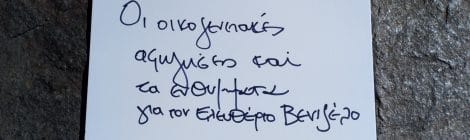 Οι οικογενειακές
αφηγήσεις και
τα ενθύμματα
για τον Ελευθέριο Βενιζέλο